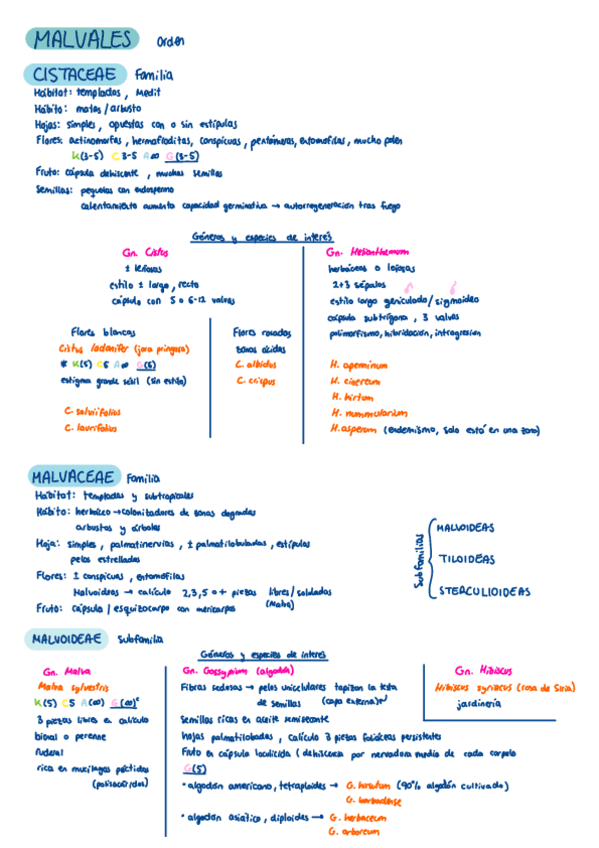 MALVALES Orden
CISTACEAE Familia
Hábitat: templados, Medit
Hábito: matas / arbusto
Hojas: simples, opuestas con o sin estípulas
Flores: actinomorfas, hermafroditas, conspicuas, pentámeras, entomófilas, mucho polen
K(3-5) C 3-5 A∞ G(3-5)
Fruto: cápsula dehiscente, muchas semillas
Semillas: pequeñas con endospermo
calentamiento aumenta capacidad germinativa → autorregeneración tras fuego
Géneros y especies de interés
Gn. Cistus
± leñosas
estilo ± largo, recto
cápsula con 5 o 6-12 valvas
Flores blancas
Cistus ladanifer (jara pringosa)
* K(5) C5 A∞ G(6)
estigma grande sésil (sin estilo)
C. salviifolius
C. laurifolius
Flores rosadas
zonas ácidas
C. albidus
C. crispus
Gn. Helianthemum
herbáceas o leñosas
2+3 sépalos
estilo largo geniculado/sigmoideo
cápsula subtrígona, 3 valvas
polimorfismo, hibridación, introgresión
H. apenninum
H. cinereum
H. hirtum
H. nummularium
H. asperum (endemismo, solo está en una zona)
MALVACEAE Familia
Hábitat: templadas y subtropicales
Hábito: herbáceo → colonizadores de zonas degradas
arbustos y árboles
Hoja: simples, palmatinervias, ± palmatilobuladas, estípulas
pelos estrellados
Flores: ± conspicuas, entomófilas
Malvoideas → calículo 2,3,5 o + piezas libres/soldadas
(Malva)
Fruto: cápsula / esquizocarpo con mericarpos
Subfamilias
MALVOIDEAS
TILOIDEAS
STERCULIOIDEAS
MALVOIDEAE Subfamilia
Géneros y especies de interés
Gn. Malva
Malva sylvestris
K(5) C5 A(∞) G(∞)
3 piezas libres en calículo
bienal o perenne
ruderal
rica en mucílagos pécticos
(polisacáridos)
Gn. Gossypium (algodón)
Fibras sedosas → pelos unicelulares tapizan la testa
de semillas (capa externa)
Semillas ricas en aceite semisecante
hojas palmatilobadas, calículo 3 piezas foliáceas persistentes
Fruto en cápsula loculicida (dehiscencia por nervadura media de cada carpelo
G(5)
• algodón americano, tetraploides → G. hirsutum (90% algodón cultivado)
G. barbadense
• algodón asiático, diploides → G. herbaceum
G. arboreum
Gn. Hibiscus
Hibiscus syriacus (rosa de Siria)
jardinería